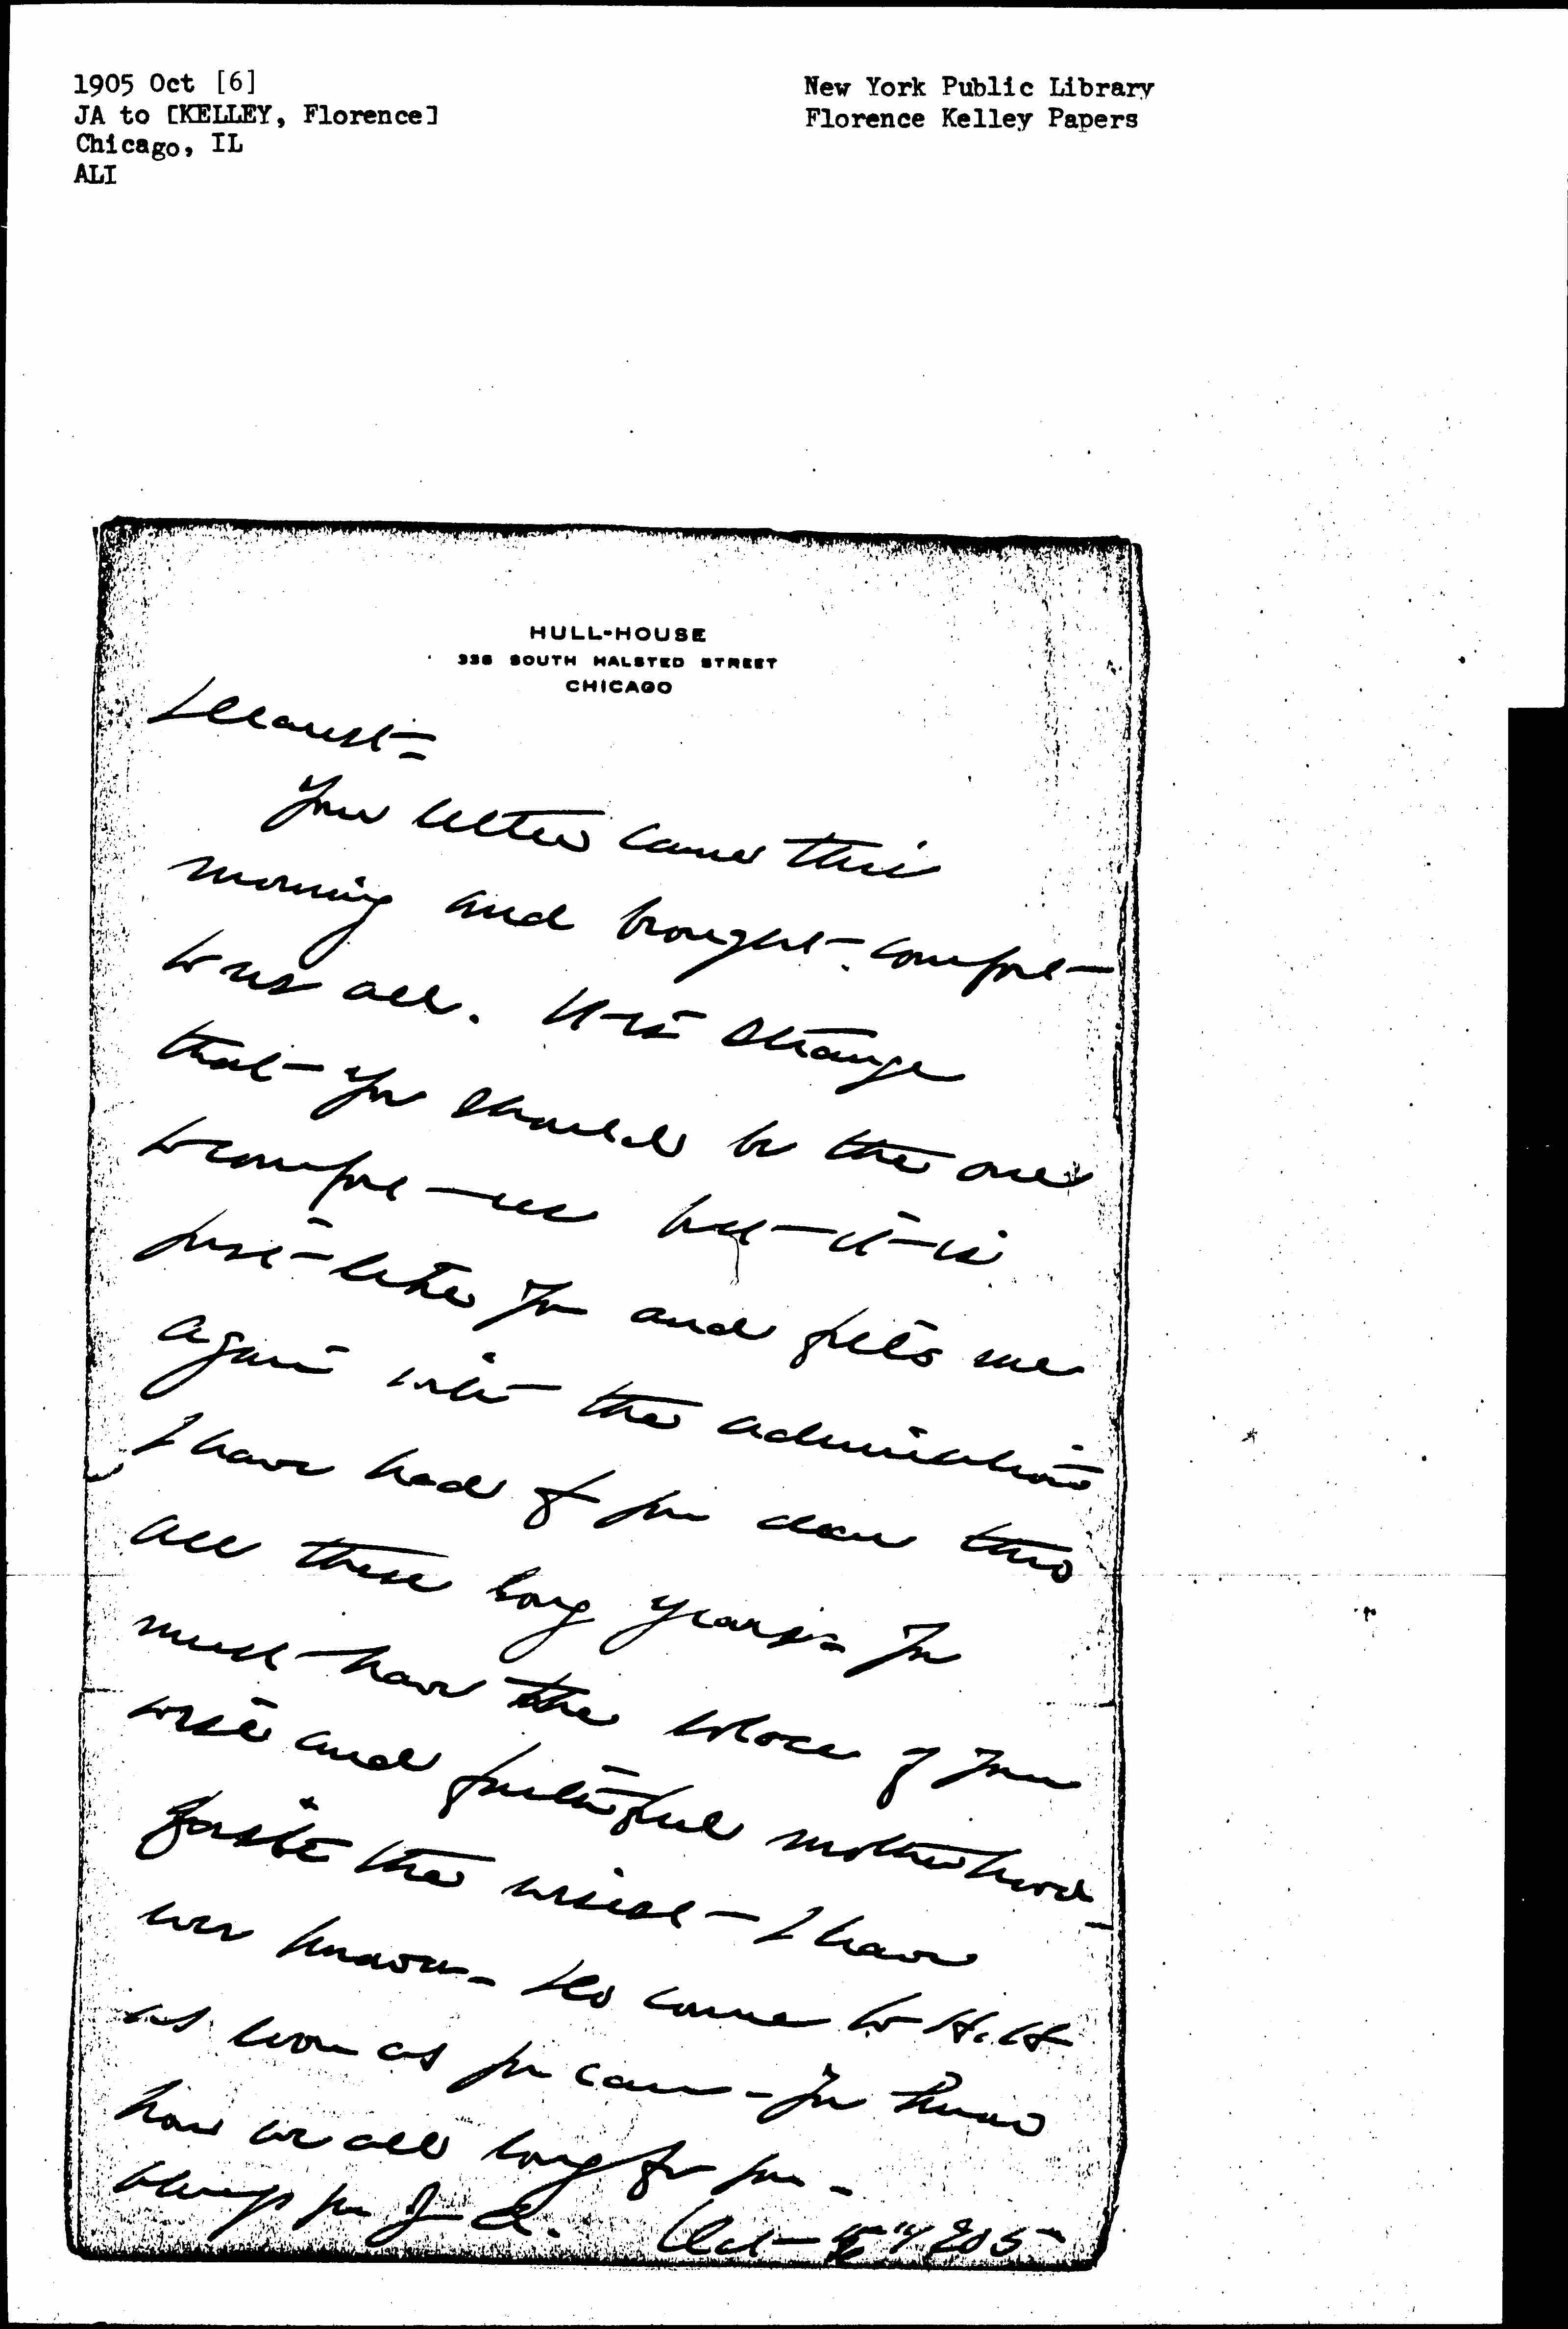 1905 Oct [6]
JA to [KELLEY, Florence]
Chicago, IL
ALI
New York Public Library
Florence Kelley Papers
HULL-HOUSE
335 SOUTH HALSTED STREET
CHICAGO
Dearest =
Your letter came this
morning and brought comfort
to us all. It is strange
that you should be the one
to comfort us but it is
just like you and fills me
again with the admiration
I have had of you dear thro
all these long years = You
must have the solace of your
wise and faithful motherhood
quite the wisest I have
ever known - Do come to H.H
as soon as you can - You know
how we all long for you -
Always yr J. A. Oct 1905